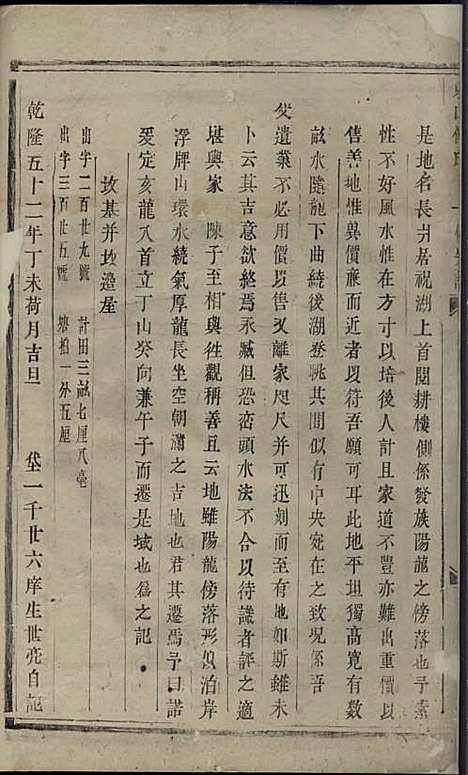 是地名長圻居祝湖上首閱耕樓側係發族陽龍之傍落也予素
性不好風水惟在方寸以培後人計且家道不豐亦難出重價以
售善地惟異價廉而近者以符吾願可耳此地平坦獨高寬有數
畝水隨龍下曲繞後湖登眺其間似有中央宛在之致況係吾
父遺業不必用價以售又離家咫尺并可迅刻而至有地如斯雖未
卜云其吉意欲終焉永臧但恐巒頭水法不合以待識者評之適
堪輿家　陳子至相與往觀稱善且云地雖陽龍傍落形似泊岸
浮牌山環水繞氣厚龍長坐空朝瀟之吉地也君其遷焉予曰諾
爰定亥龍入首立丁山癸向兼午子而遷是域也爲之記
坟基并坟邉屋
出字二百廿九號　計田三畝七厘八毫
出字三百廿五號　墩拍一分五厘
乾隆五十二年丁未荷月吉旦　垈一千廿六庠生世亮自記